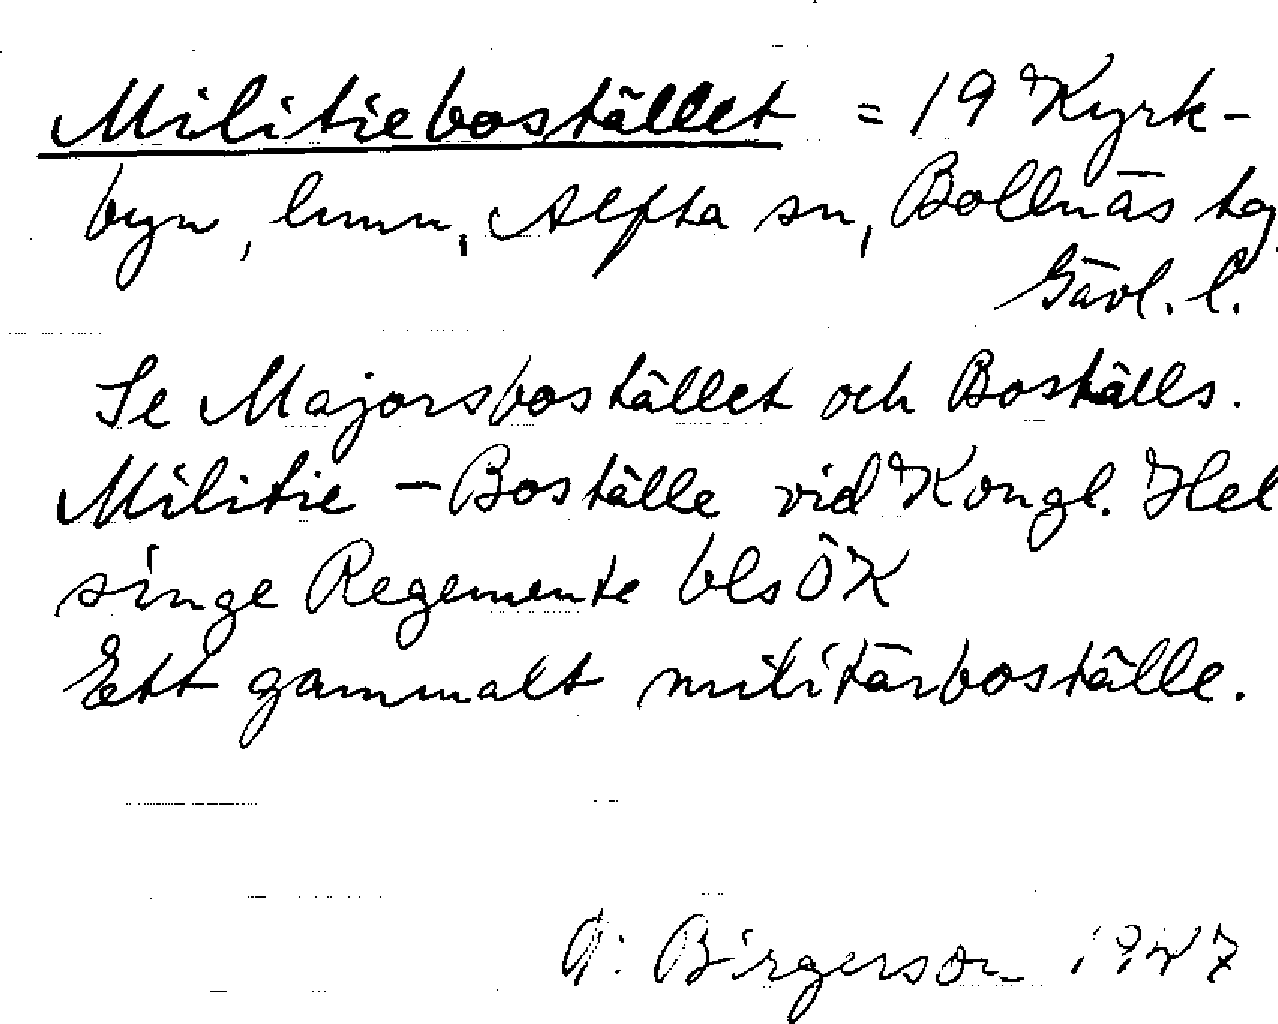 Militiebostället = 19 Kyrk-
byn, hmn, Alfta sn, Bollnäs tg
Gävl. l.
Se Majorsbostället och Boställs.
Militie-Boställe vid Kongl. Hel
singe Regemente bls ÖK
Ett gammalt militärboställe.
G: Birgerson 1947